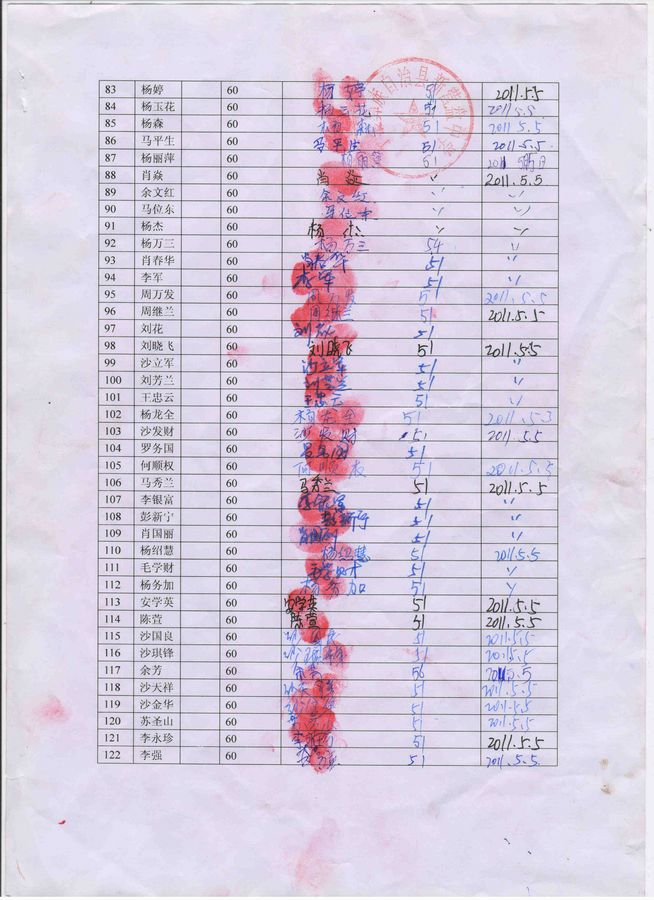 83 杨婷 60 杨婷 51 2011.5.5
84 杨玉花 60 杨玉花 51 2011.5.5
85 杨森 60 杨森 51 2011.5.5
86 马平生 60 马平生 51 2011.5.5.
87 杨丽萍 60 杨丽萍 51
88 肖焱 60 肖焱 〃 2011.5.5
89 余文红 60 余文红 〃 〃
90 马位东 60 马位东 〃 〃
91 杨杰 60 杨杰 〃 〃
92 杨万三 60 杨万三 54 〃
93 肖春华 60 肖春华 51 〃
94 李军 60 李军 51 〃
95 周万发 60 周万发 51 2011.5.5
96 周继兰 60 周继兰 51 2011.5.5
97 刘花 60 刘花 51
98 刘晓飞 60 刘晓飞 51 2011.5.5
99 沙立军 60 沙立军 51 〃
100 刘芳兰 60 刘芳兰 51 〃
101 王忠云 60 王忠云 51 〃
102 杨龙全 60 杨龙全 51 2011.5.3
103 沙发财 60 沙发财 51 2011.5.5
104 罗务国 60 51
105 何顺权 60 何顺权 51 2011.5.5
106 马秀兰 60 马秀兰 51 2011.5.5
107 李银富 60 51 〃
108 彭新宁 60 51 〃
109 肖国丽 60 肖国丽 51 〃
110 杨绍慧 60 杨绍慧 51 2011.5.5
111 毛学财 60 51 〃
112 杨务加 60 杨务加 51 〃
113 安学英 60 安学英 51 2011.5.5
114 陈萱 60 陈萱 51 2011.5.5
115 沙国良 60 51 2011.5.5
116 沙琪锋 60 51
117 余芳 60 余芳
118 沙天祥 60 51 2011.5.5
119 沙金华 60 51 2011.5.5
120 苏圣山 60 51 2011.5.5
121 李永珍 60 51 2011.5.5
122 李强 60 51 2011.5.5.